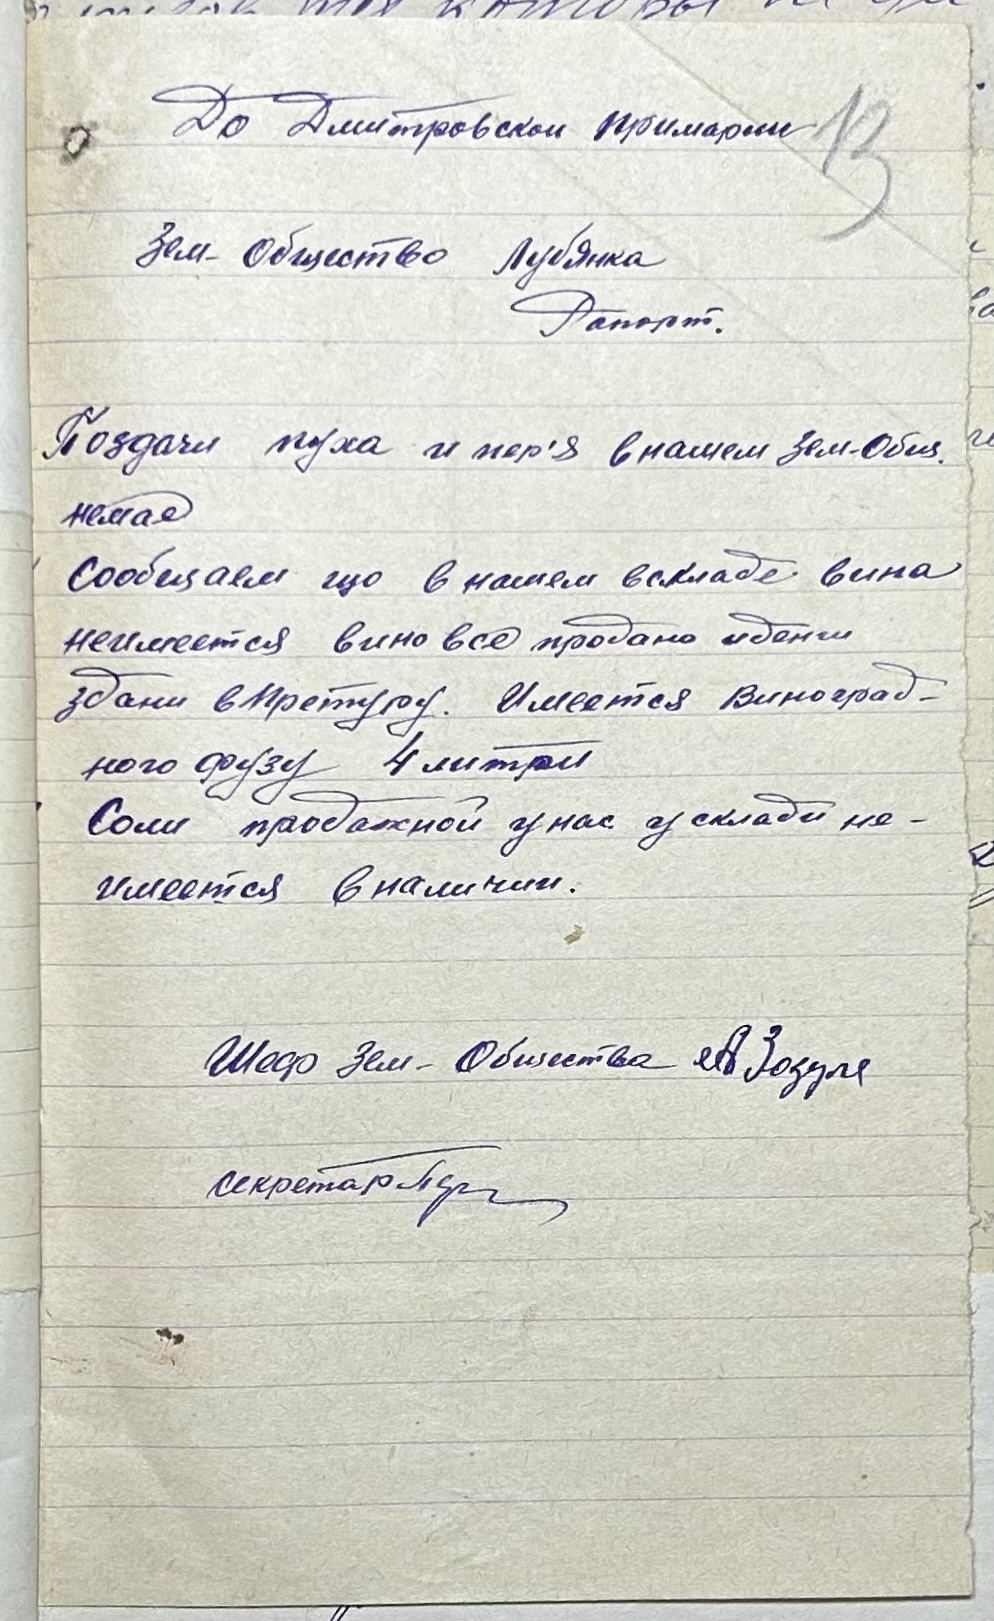 13
До Дмитровской примарии
Зем-Общество Лубянка
Рапорт.
Поздачи пуха и пер'я в нашем Зем-Общ.
немае
Сообщаем що в нашем вскладе вина
неимеется вино все продано иденги
здани в Претуру. Имеется виноград-
ного фузу 4 литри
Соли продажной у нас у складi не-
имеется в наличии.
Шеф Зем-Общества Зозуля
секретар